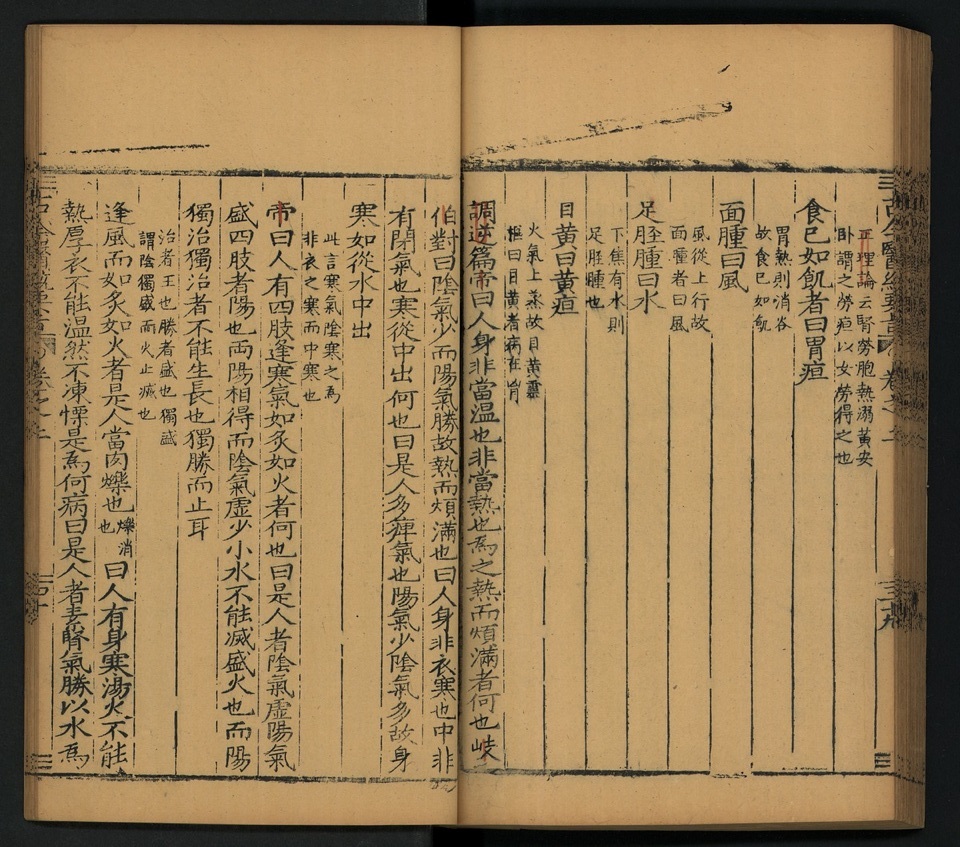 正理論云腎勞胞熱溺黃安
卧謂之勞疸以女勞得之也
食已如飢者曰胃疸
胃熱則消谷
故食已如飢
面腫曰風
風從上行故
面腫者曰風
足脛腫曰水
下焦有水則
足脛腫也
目黃曰黃疸
火氣上蒸故目黃靈
樞曰目黃者病在胷
調逆篇帝曰人身非當温也非當熱也為之熱而煩滿者何也岐
伯對曰陰氣少而陽氣勝故熱而煩滿也曰人身非衣寒也中非
有閉氣也寒從中出何也曰是人多痺氣也陽氣少陰氣多故身
寒如從水中出
此言寒氣陰寒之為
非衣之寒而中寒也
帝曰人有四肢逢寒氣如炙如火者何也曰是人者陰氣虛陽氣
盛四肢者陽也兩陽相得而陰氣虛少小水不能滅盛火也而陽
獨治獨治者不能生長也獨勝而止耳
治者王也勝者盛也獨盛
謂陰獨盛而火止滅也
逢風而如炙如火者是人當肉爍也爍消也曰人有身寒湯火不能
熱厚衣不能温然不凍慄是為何病曰是人者素腎氣勝以水為
卷之二
三十九
四十